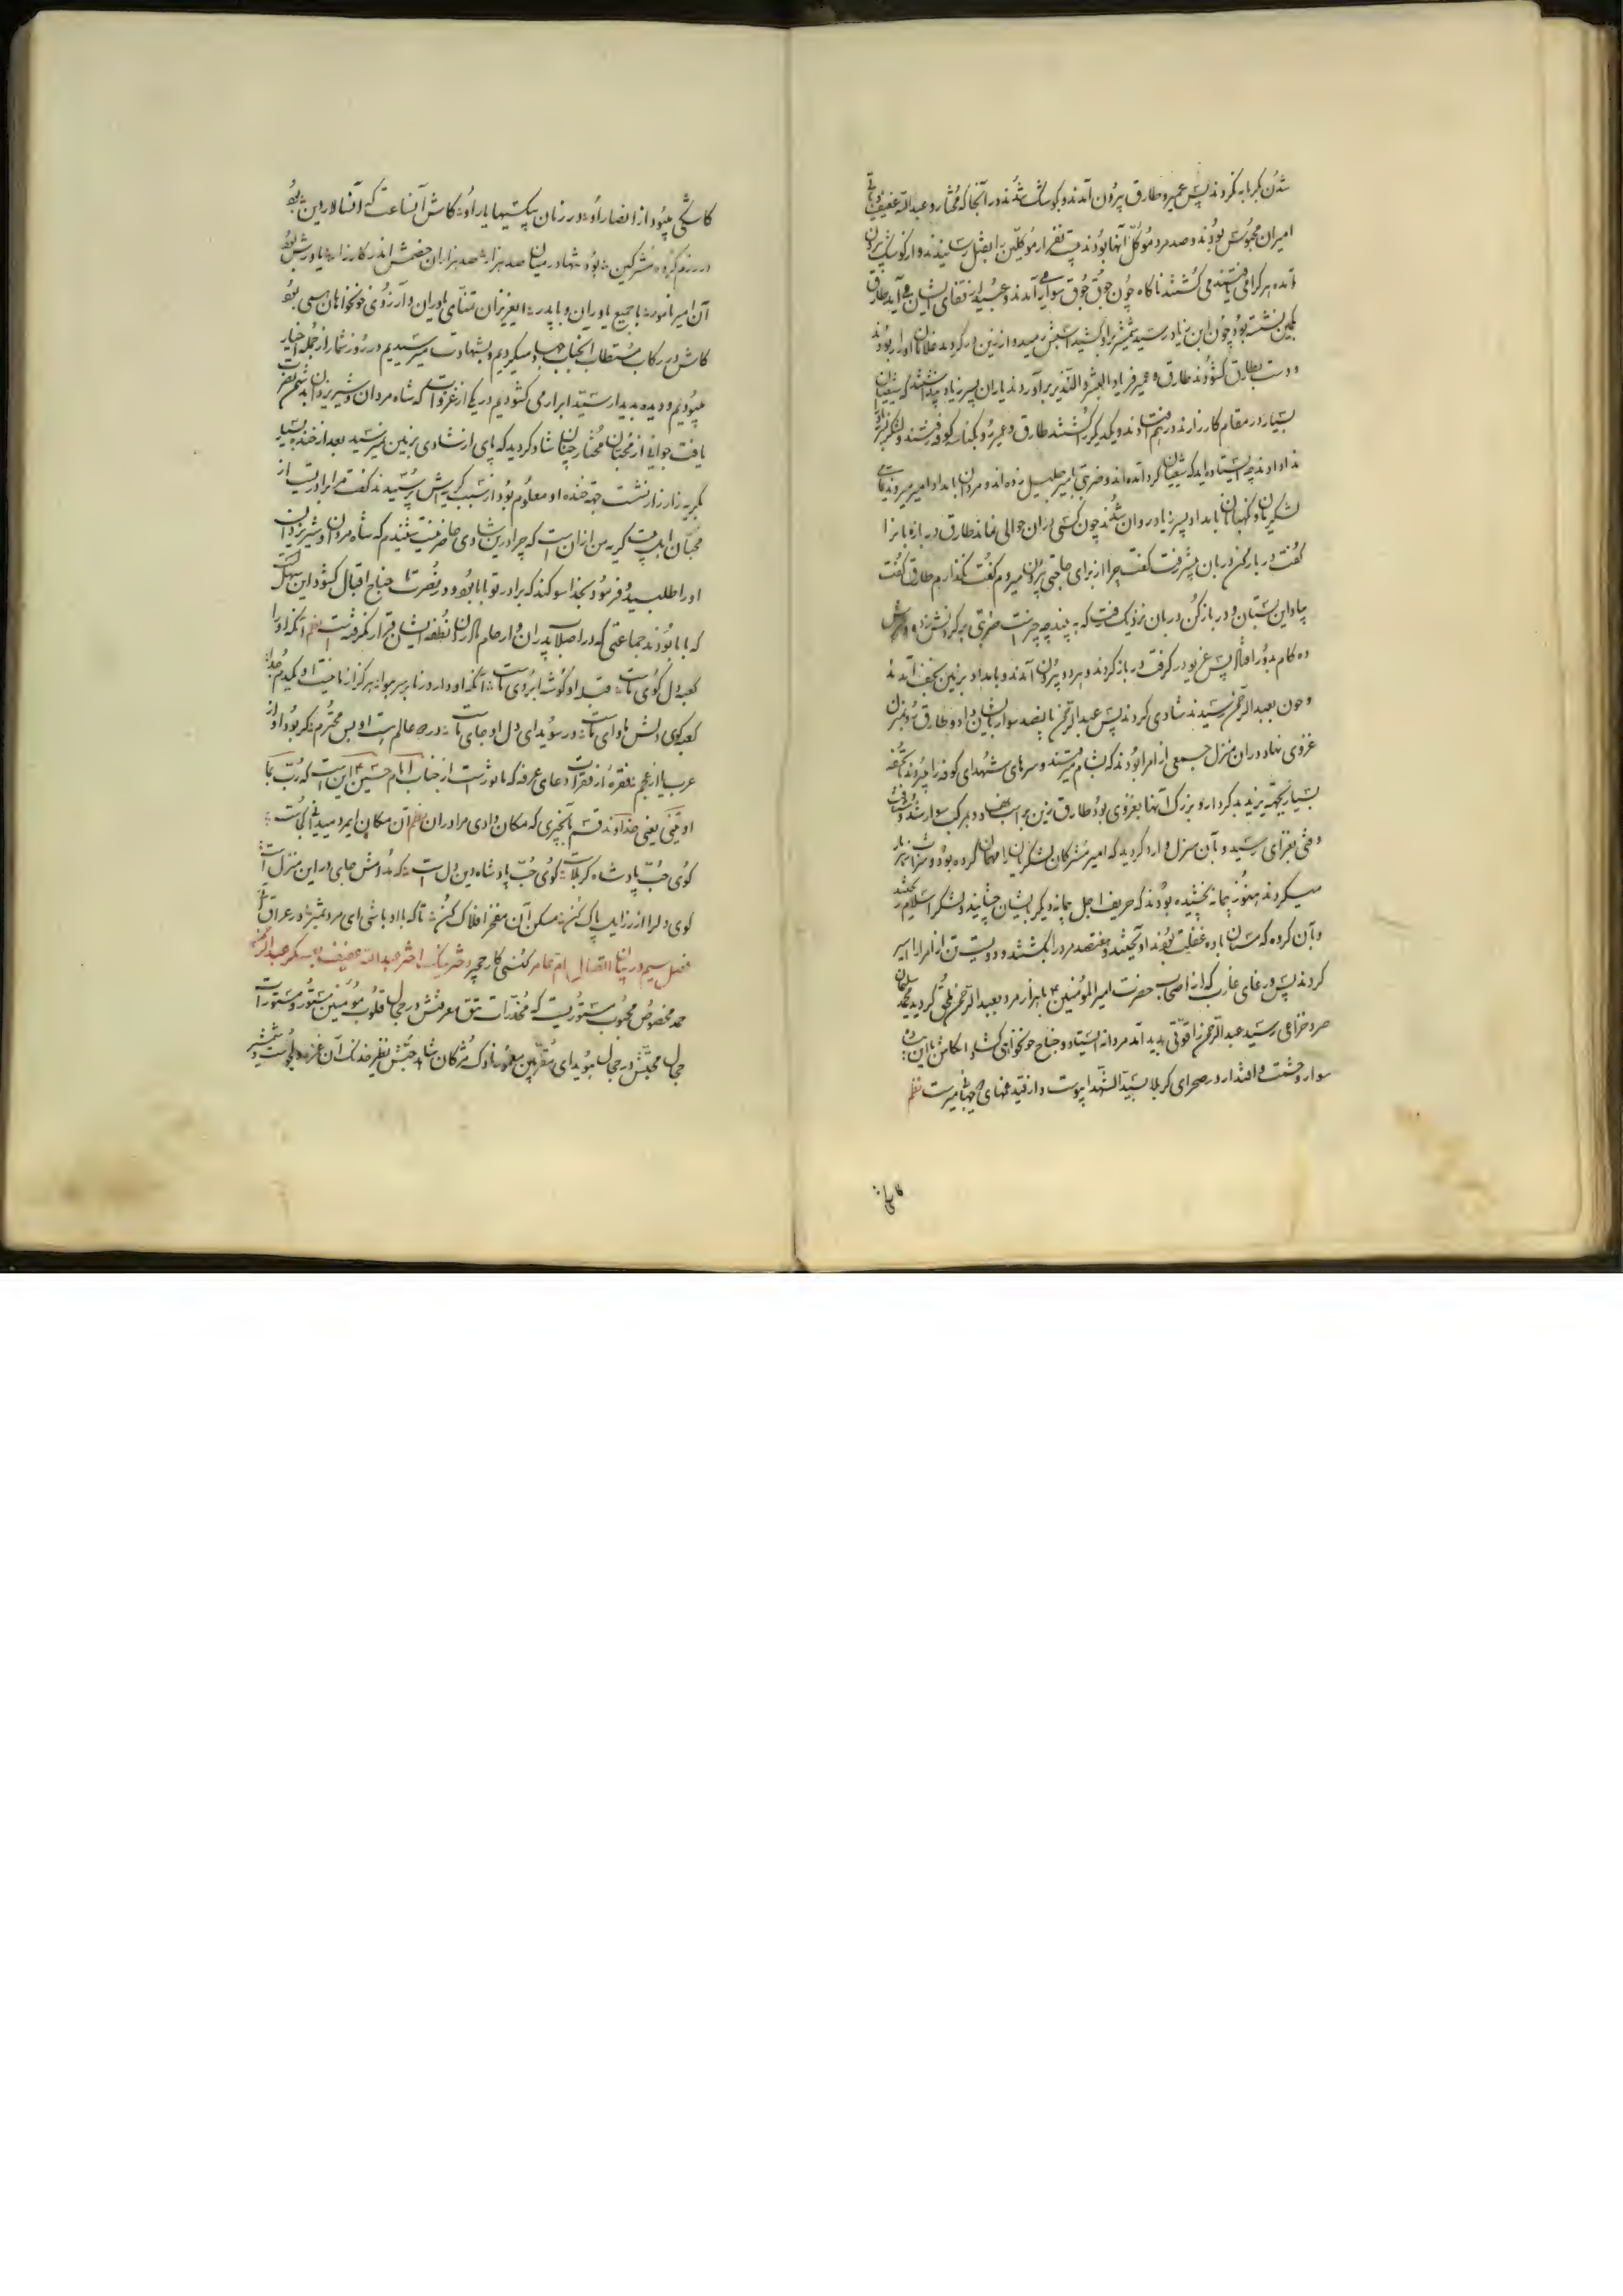 شدن بگرمابه کردند پس عمیر و طارق بیرون آمدند و بکوشک شدند در آنجا که مختار و عبدالله عفیف و باقی
امیران محبوس بودند و صد مرد موکل آنها بودند نفر از موکلین را بقتل رسانیدند و از کوشک بیرون
آمده هر که را می یافتند می کشتند ناگاه چون جوق جوق سواری آمدند و عبید از قفای ایشان می آید طارق
بکمین نشسته بود چون ابن زیاد رسید شمشیر بر او کشید اسبش رمید و از زین در گردید غلامان او را ربودند
و دست بطارق گشودند طارق و عمیر فریاد البشر والنذیر برآوردند یاران پسر زیاد پنداشتند که شیعیان
بسیار در مقام کارزارند در هم افتادند و یکدیگر را کشتند طارق و عمیر و بکنار کوفه رفتند و لشکر
ندا دادند چه ایستاده اید که شیعیان گرد آمده اند و ضربتی بامیر جلیل زده اند و مردان بامداد امیر میروند تمامی
لشکریان و نگهبانان بامداد پسر زیاد روان شدند چون کسی در آن حوالی نماند طارق دربان را
گفت در باز کن دربان پیش رفت گفت چرا از برای حاجتی بیرون میروم گفت نگذارم طارق گفت
بیا و این بستان و در باز کن دربان نزدیک رفت که به بیند چه چیز است ضربتی بر گردنش زد و سرش
ده گام بدور افتاد پس عمیر در گرفت در باز کردند و هر دو بیرون آمدند و بامداد بزمین نجف آمدند
و چون بعبدالرحمن رسیدند شادی کردند پس عبدالرحمن پانصد سوار بایشان داد و طارق رو بمنزل
غزوی نهاد در آن منزل جمعی از امرا بودند که بشام میرفتند و سرهای شهدای کوفه را میبردند با تحفه
بسیار بجهة یزید بدکردار و بزرگ آنها بغزوی بود طارق زین بر اسب نهاد و بر مرکب سوار شد و شتافت
وقتی بغزای رسید و بآن منزل وارد گردید که امیر مشرکان لشکریان را مهمان کرده بود و شراب زهرمار
میکردند هنوز پیمانه نچشیده بودند که حریف اجل پیمانه دیگر بایشان چشانید و لشکر اسلام رسید
و بآن گروه که مستان باده غفلت بودند آویختند و هفتصد مرد را بکشتند و دویست تن از امرا را اسیر
کردند پس ورغای عازب که از اصحاب حضرت امیر المؤمنین ع با هزار مرد بعبدالرحمن ملحق گردید محمد سلیمان
صرد خزاعی رسید عبدالرحمن را قوتی پدید آمد مردانه ایستاد و جناح خونخواهی گشاد ای کاش با این
سوار و حشمت و اقتدار در صحرای کربلا بسید الشهدا می پیوست و از قید غمهای جهان میرست نظم
کاشکی
کاشکی میبود از انصار او در زمان بیکسیها یار او کاش آنساعت که افتاد لار دین بود
در رزم گروه مشرکین بود تنها در میان صد هزار صد هزاران خصمش اندر کارزار یاورش بود
آن امیر نامور با جمیع یاوران و با پدر ایعزیزان تمنای یاوران و آرزوی خونخواهان همی بود
کاش در رکاب مستطاب آنجناب جهاد میکردیم و بشهادت میرسیدیم در روز شمار از جمله اخیار
میبودیم و دیده بدیدار سید ابرار می گشودیم در یکی از غزوات که شاه مردان و شیر یزدان بر خصم نصرت
یافت جوانی از محبان مختار چنان شاد گردید که پای از شادی بزمین نمیرسید بعد از خنده بسیار
بگریه زار زار نشست جهة خنده او معلوم بود از سبب گریه اش پرسیدند گفت مرا برادریست از
محبان اهل بیت گریه من از آن است که چرا در این شادی حاضر نیست شنیدم که شاه مردان و شیر یزدان
او را طلبید و فرمود بخدا سوگند که برادر تو با ما بود و در نصرت ما جناح اقبال گشود این سهل است
که با ما بودند جماعتی که در اصلاب پدران و ارحام مادران نطفه ایشان قرار نگرفته است نظم آنکه او را
کعبه دل کوی ماست قبله او گوشه ابروی ماست آنکه او دارد ز ما بر سر هوا هرگز از ما نیست او یکدم جدا
کعبه کوی دلش ماوای ماست در سویدای دل او جای ماست در دو عالم است او بس محترم گر بود او از
عرب یا از عجم فقره از فقرات دعای عرفه که ماثور است از جناب امام حسین ع این است که رب بما
اویتنی یعنی خداوندا قسم بآنچیزی که مکان دادی مرا در آن نظم آن مکان ایمرد میدانی کجاست
کوی حب پادشاه کربلاست کوی حب پادشاه دین دل است که مدامش جای در این منزل است
کوی دلرا از رزایل پاک کن مسکن آن مفخر افلاک کن تا که با او باشی ای مرد تمیز در عراق
فصل سیم در بیان اتصال ام عامر کنشی کار حمیر دختر نیک اختر عبدالله عفیف به لشکر عبدالرحمن
حمد مخصوص محبوب مستوریست که مخدرات تتق معرفتش در حجال قلوب مومنین مستور و مستورات
حجال محبتش در حجال سویدای مقربین معمور ناوک مژگان شاهد حبش نظیر خدنگ آن غمزه دلدوست و شمشیر